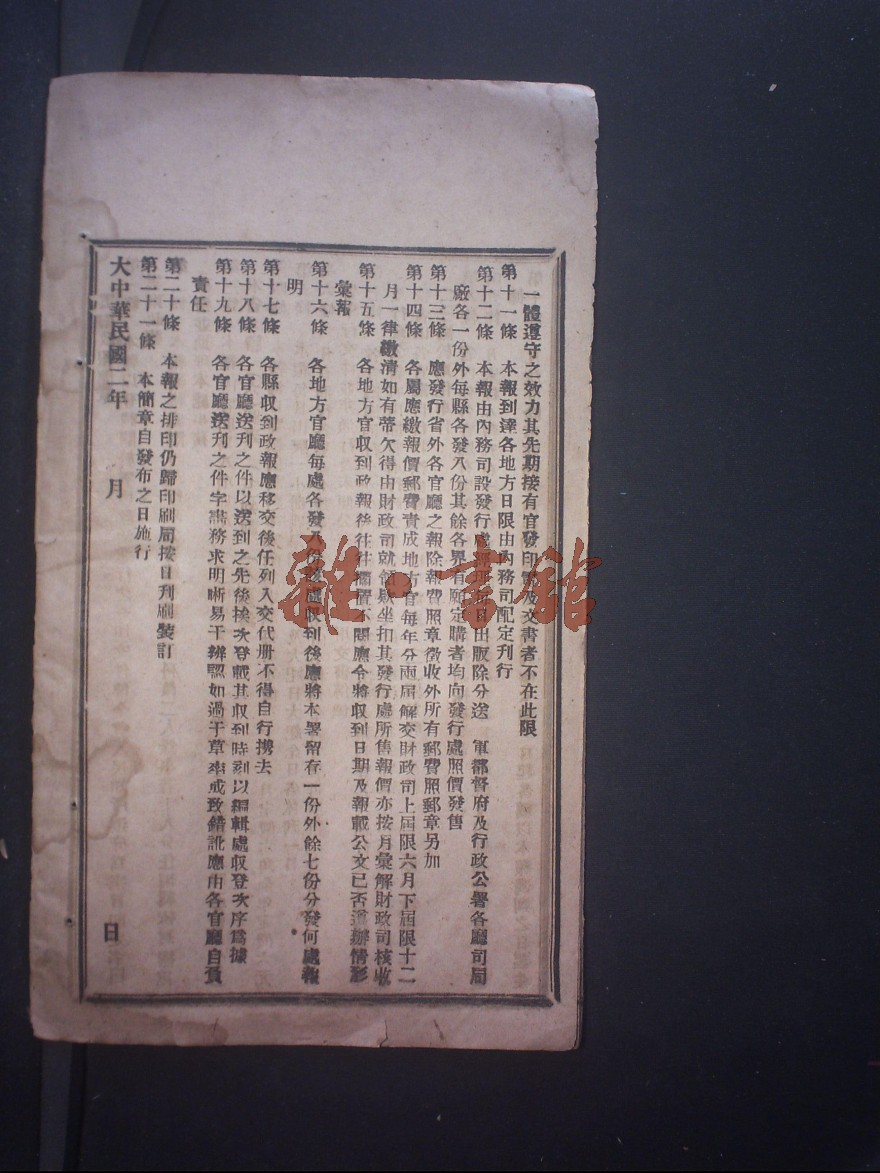 一體遵守之效力其先期接有官發印電及文書者不在此限
第十一條　本報到達各地方日限由內務司配定刊行
第十二條　本報由內務司設發行處經理每日出版除分送　軍都督府及行政公署各廳司局
廠各一份外每縣各發八份其餘各界有願定購者均向發行處照價發售
第十三條　應發行省外各官廳之報除報費照章徵收外所有郵費照郵章另加
第十四條　各屬應繳報價郵費責成地方官每年分兩屆解交財政司上屆限六月下屆限十二
月一律繳清如有蒂欠得由財政司就領款坐扣其發行處所售報價亦按月彙解財政司核收
第十五條　各地方官收到政報後往往擱置不閱應令將收到日期及報載公文已否遵辦情形
彙報
第十六條　各地方官廳每處各發八份該處收到後應將本署留存一份外餘七份分發何處報
明
第十七條　各縣收到政報應移交後任列入交代册不得自行携去
第十八條　各官廳送刊之件以送到之先後挨次登載其收到時刻以編輯處収登次序爲據
第十九條　各官廳送刊之件字畫務求明晰易于辨認如過于草率或致錯訛應由各官廳自負
責任
第二十條　本報之排印仍歸印刷局按日刋刷裝訂
第二十一條　本簡章自發布之日施行
大中華民國二年　月　日
雜·書館